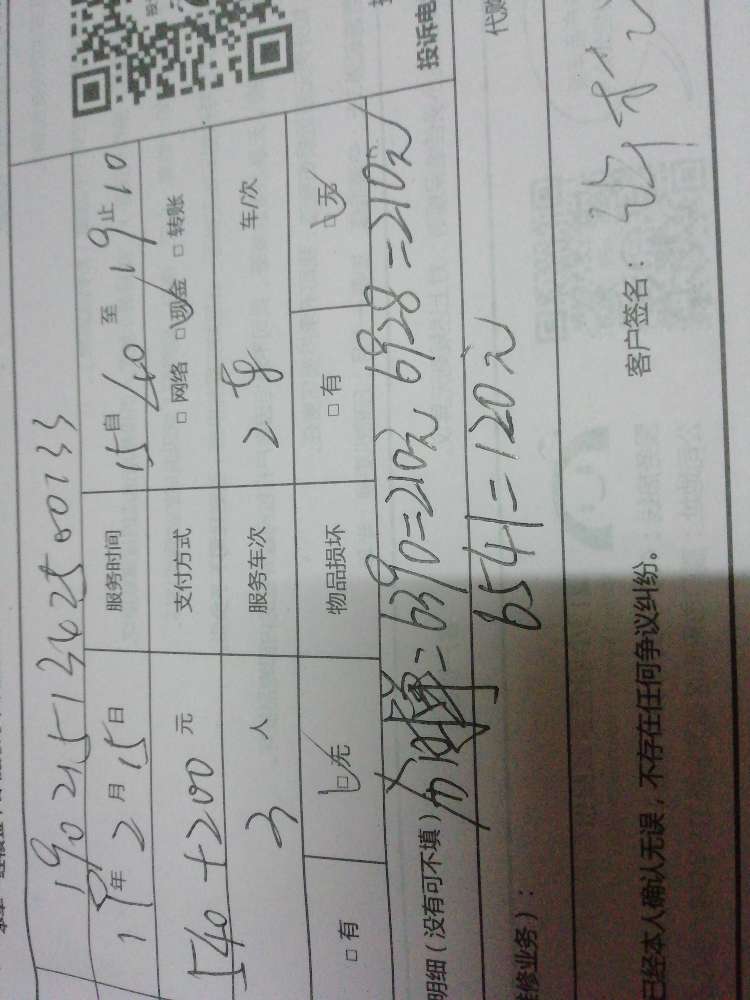 投诉电
代购
19021513425800133
19年2月15日 服务时间 15自40 至 19止10
540+200 元 支付方式 □网络 □现金 □转账
3 人 服务车次 2 车/次
□有 □无 物品损坏 □有 □无
明细（没有可不填）
=6390=210元 6928=210元
6541=120元
修业务）：
已经本人确认无误，不存在任何争议纠纷。 客户签名：